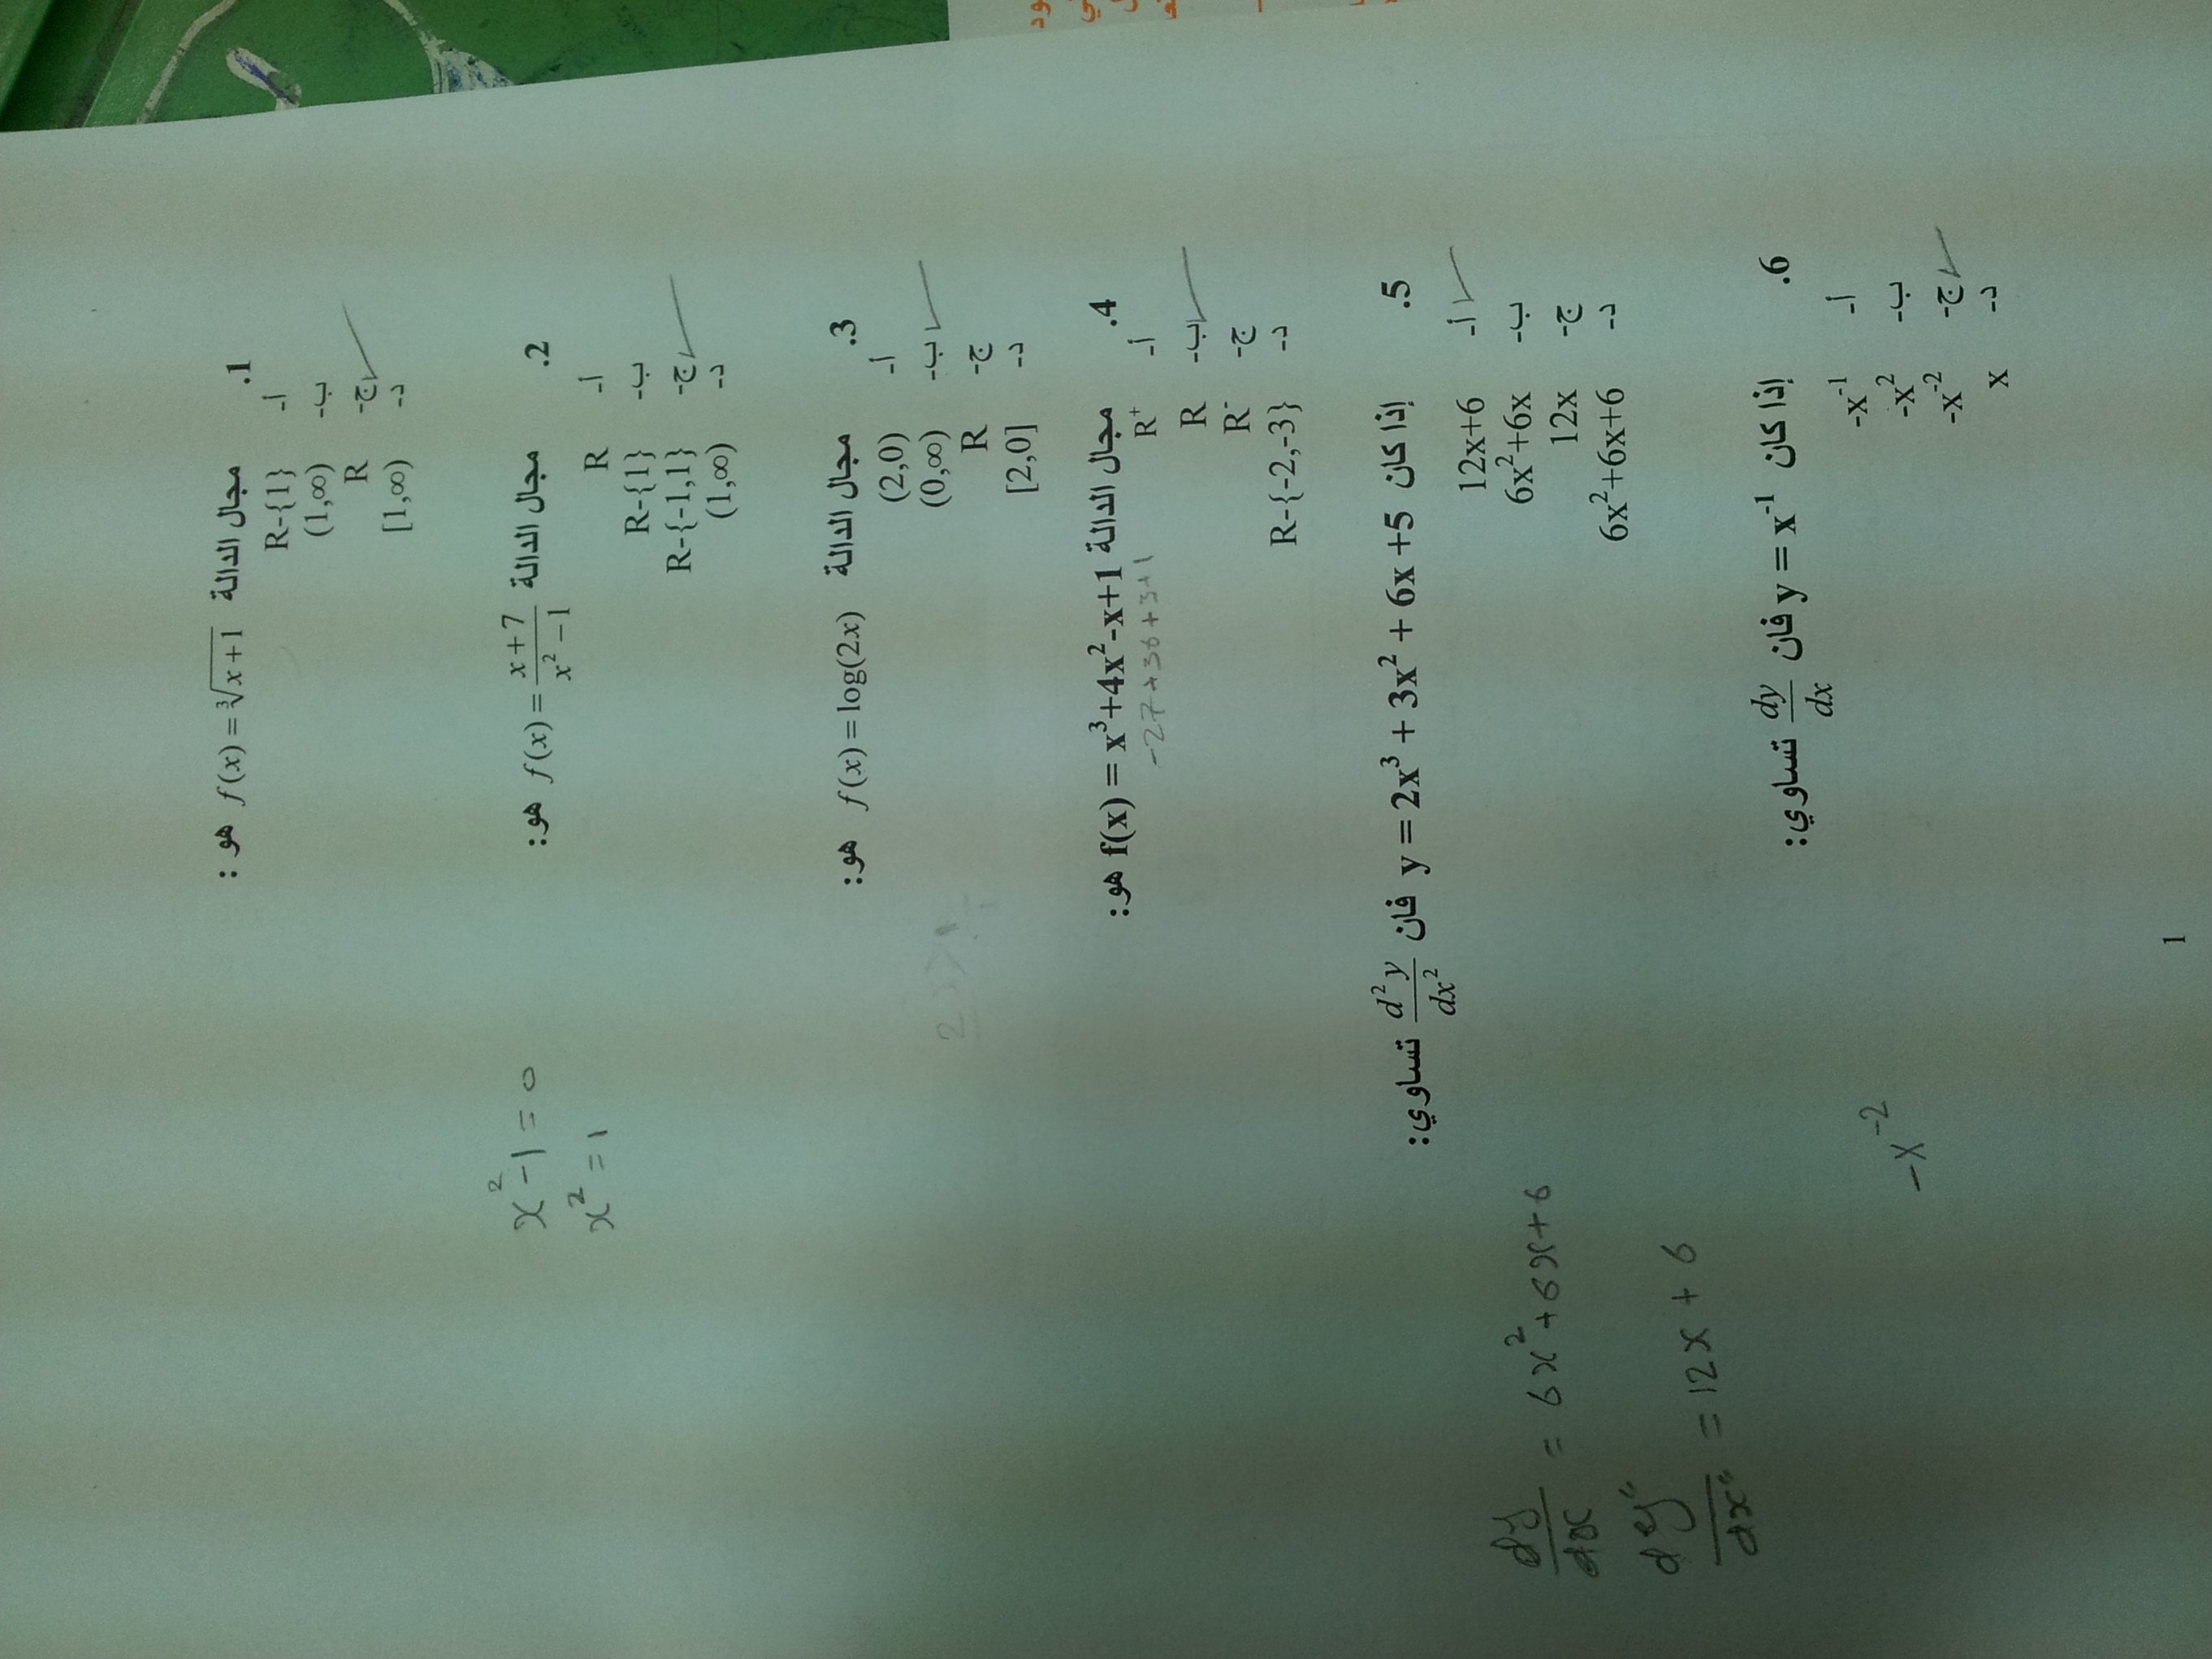 1. مجال الدالة f(x) = ∛(x+1) هو :
أ- R-{1}
ب- (1,∞)
ج- R ✓
د- [1,∞)
2. مجال الدالة f(x) = (x+7)/(x²-1) هو:
x² - 1 = 0
x² = 1
أ- R
ب- R-{1}
ج- R-{-1,1} ✓
د- (1,∞)
3. مجال الدالة f(x) = log(2x) هو:
أ- (2,0)
ب- (0,∞) ✓
ج- R
د- [2,0]
4. مجال الدالة f(x) = x³+4x²-x+1 هو:
-27+36+3+1
أ- R⁺
ب- R ✓
ج- R⁻
د- R-{-2,-3}
5. إذا كان y = 2x³ + 3x² + 6x +5 فان d²y/dx² تساوي:
أ- 12x+6 ✓
ب- 6x²+6x
ج- 12x
د- 6x²+6x+6
dy/dx = 6x² + 6x + 6
dy"/dx" = 12x + 6
6. إذا كان y = x⁻¹ فان dy/dx تساوي:
أ- -x⁻¹
ب- -x²
ج- -x⁻² ✓
د- x
-x⁻²
1